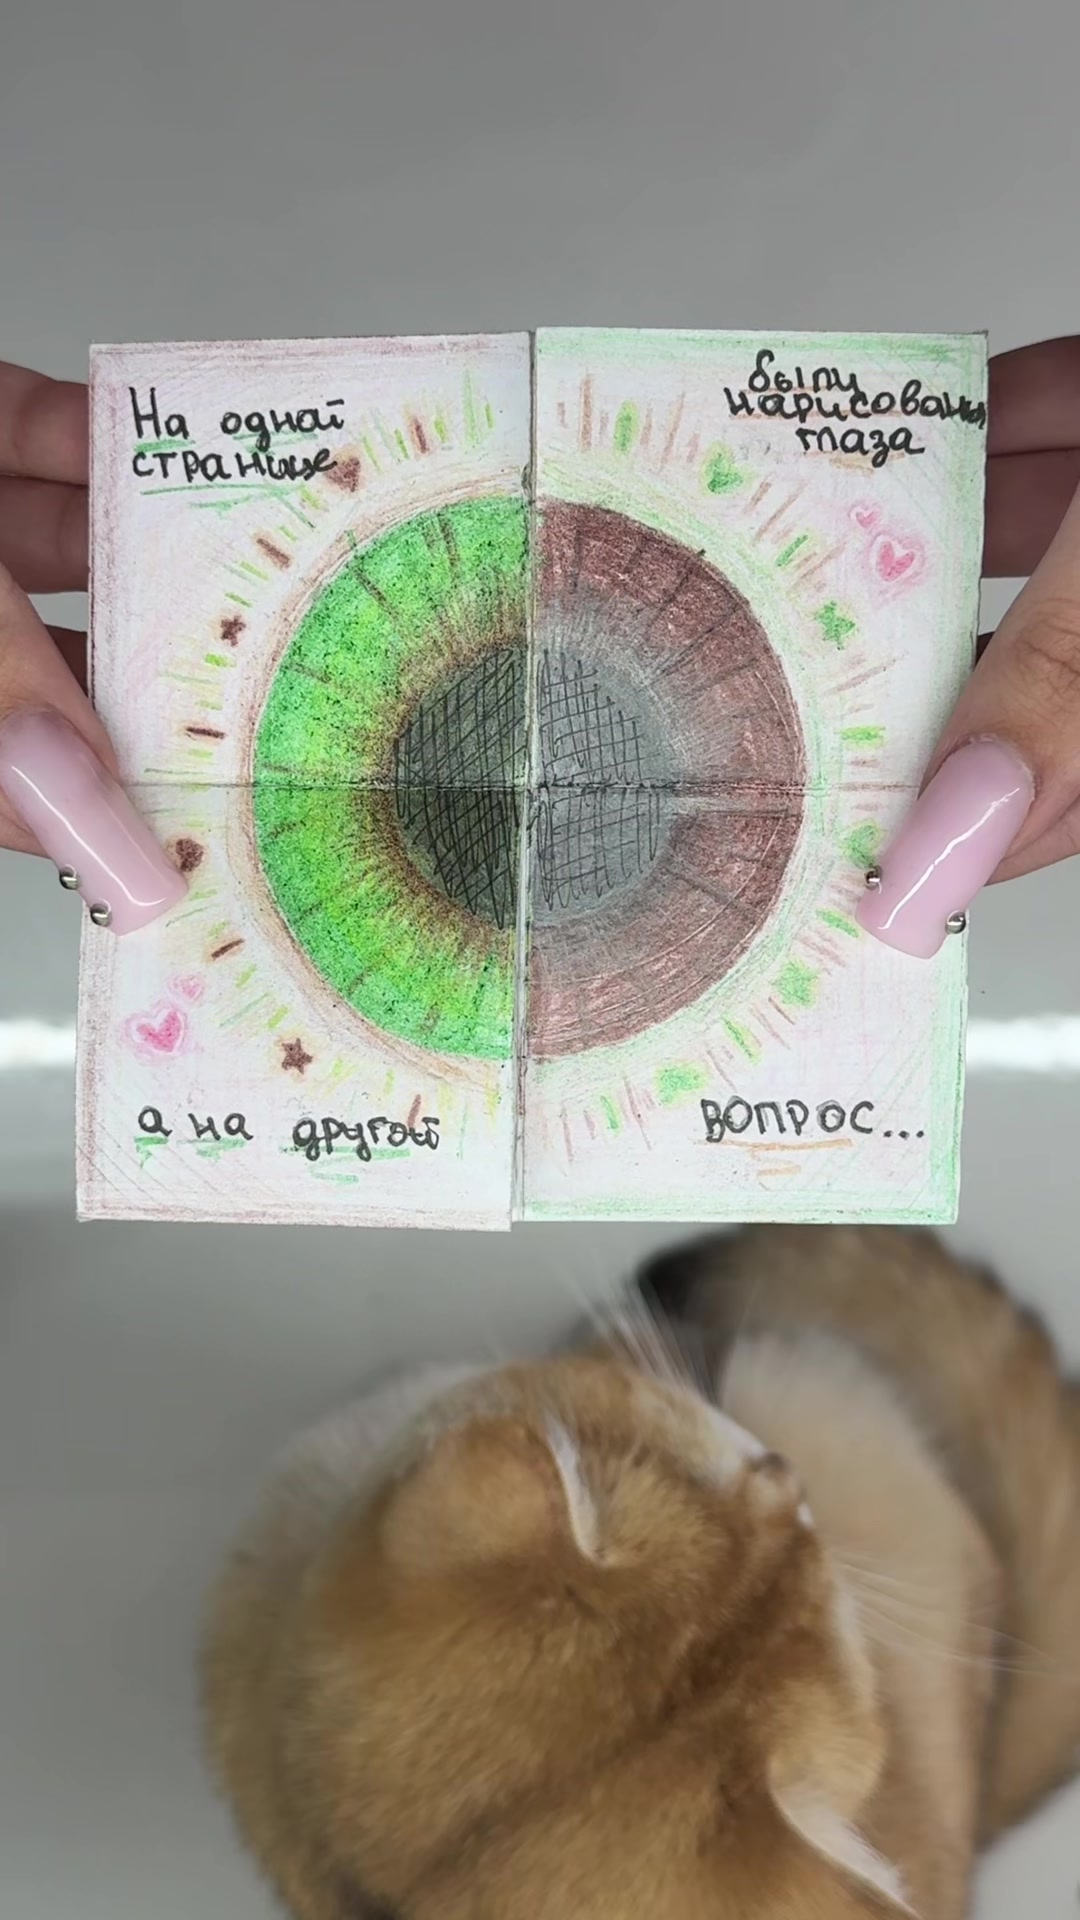 На одной
странице
были
нарисованы
глаза
а на другой
вопрос...